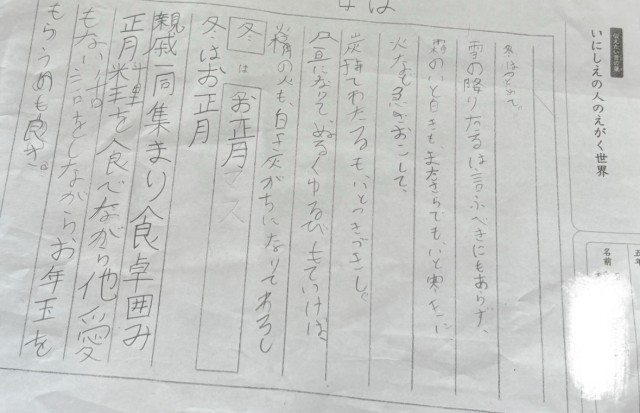 いにしえの人のえがく世界
五年
名前
冬はつとめて。
雪の降りたるは言ふべきにもあらず、
霜のいと白きもまたさらでもいと寒きに
火など急ぎおこして、
炭持てわたるもいとつきづきし。
昼になりて、ぬるくゆるびもていけば、
火桶の火も、白き灰がちになりてわろし
冬 は お正月マス
冬はお正月
親戚一同集まり食卓囲み
正月料理を食べながら他愛
もない話をしながらお年玉を
もらうのも良き。